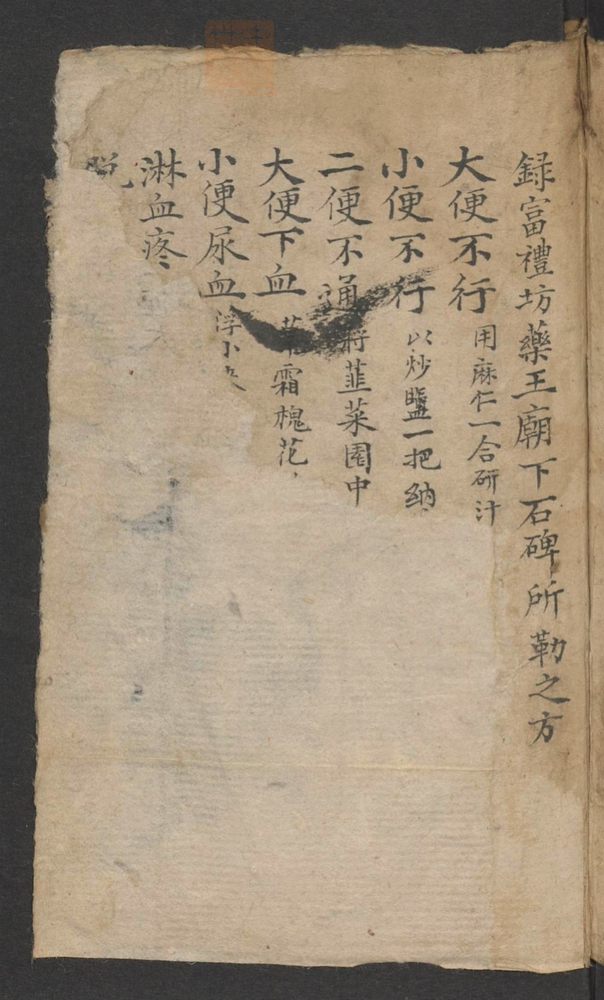 録富禮坊藥王廟下石碑所勒之方
大便不行 用麻仁一合研汁
小便不行 以炒鹽一把納
二便不通 將韮菜園中
大便下血 霜槐花
小便尿血 浮小
淋血疼
脫